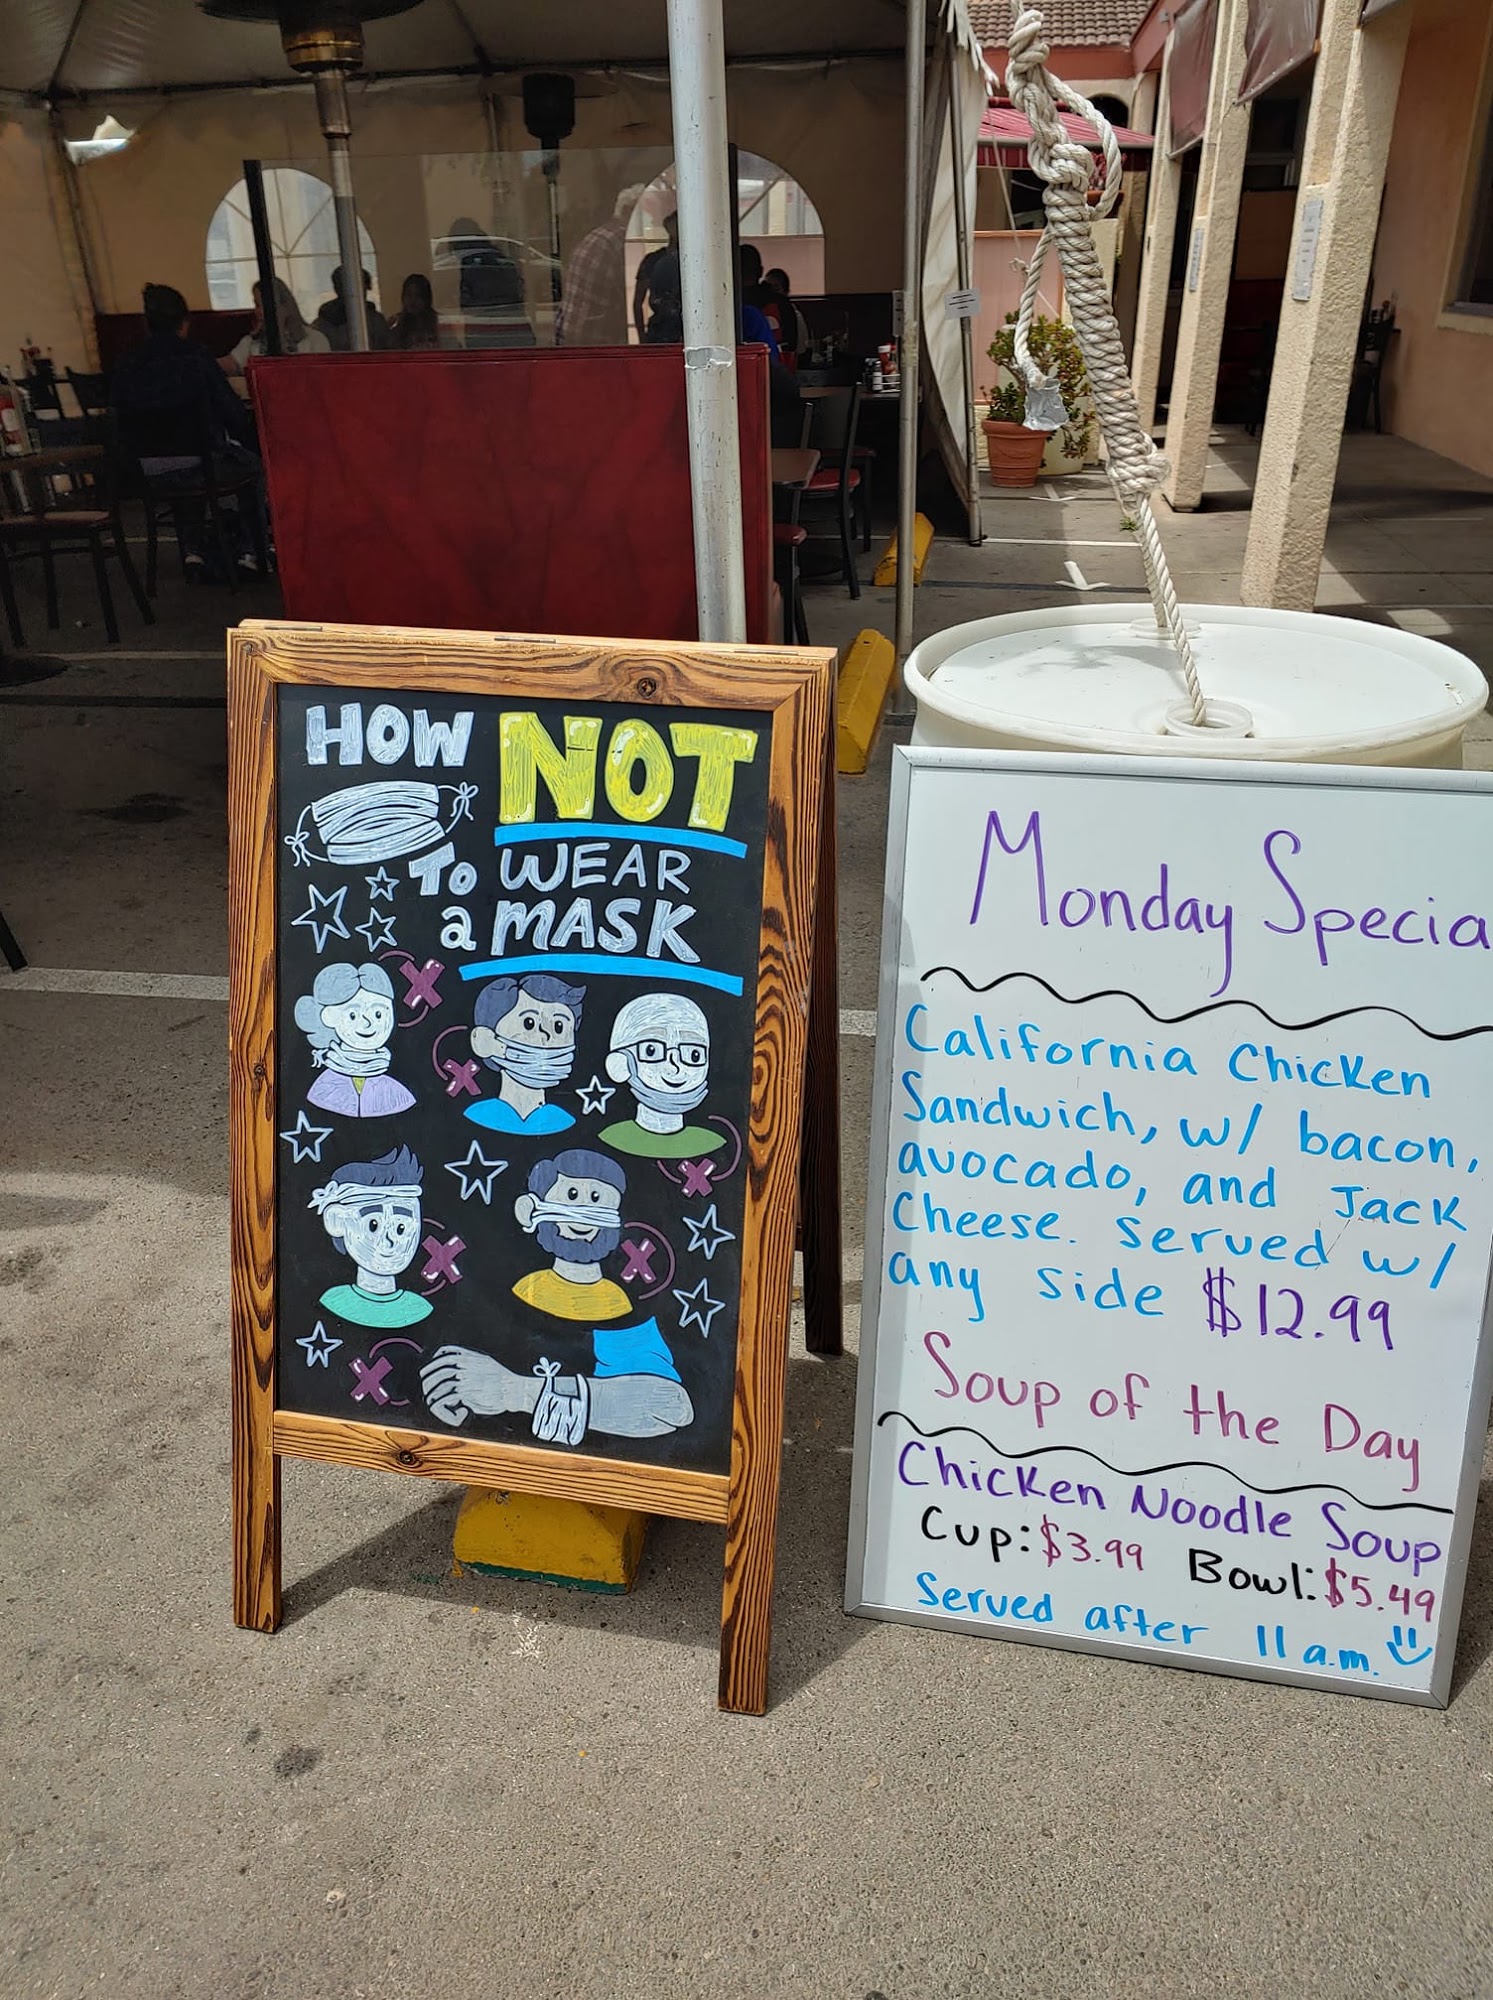 HOW NOT
TO WEAR
a MASK
Monday Specia
California Chicken
Sandwich, w/ bacon,
avocado, and Jack
Cheese. Served w/
any side $12.99
Soup of the Day
Chicken Noodle Soup
Cup: $3.99 Bowl: $5.49
Served after 11 a.m.